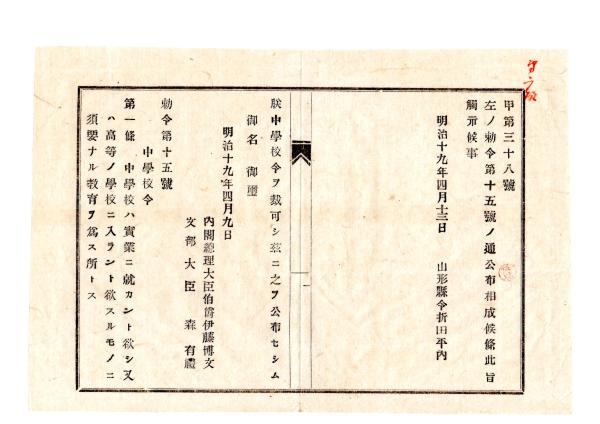 甲第三十八號
左ノ勅令第十五號ノ通公布相成候條此旨
觸示候事
明治十九年四月十三日
山形縣令折田平內
朕中學校令ヲ裁可シ玆ニ之ヲ公布セシム
御名 御璽
明治十九年四月九日
內閣總理大臣伯爵伊藤博文
文部大臣 森有禮
勅令第十五號
中學校令
第一條 中學校ハ實業ニ就カント欲シ又
ハ高等ノ學校ニ入ラント欲スルモノニ
須要ナル敎育ヲ爲ス所トス
一